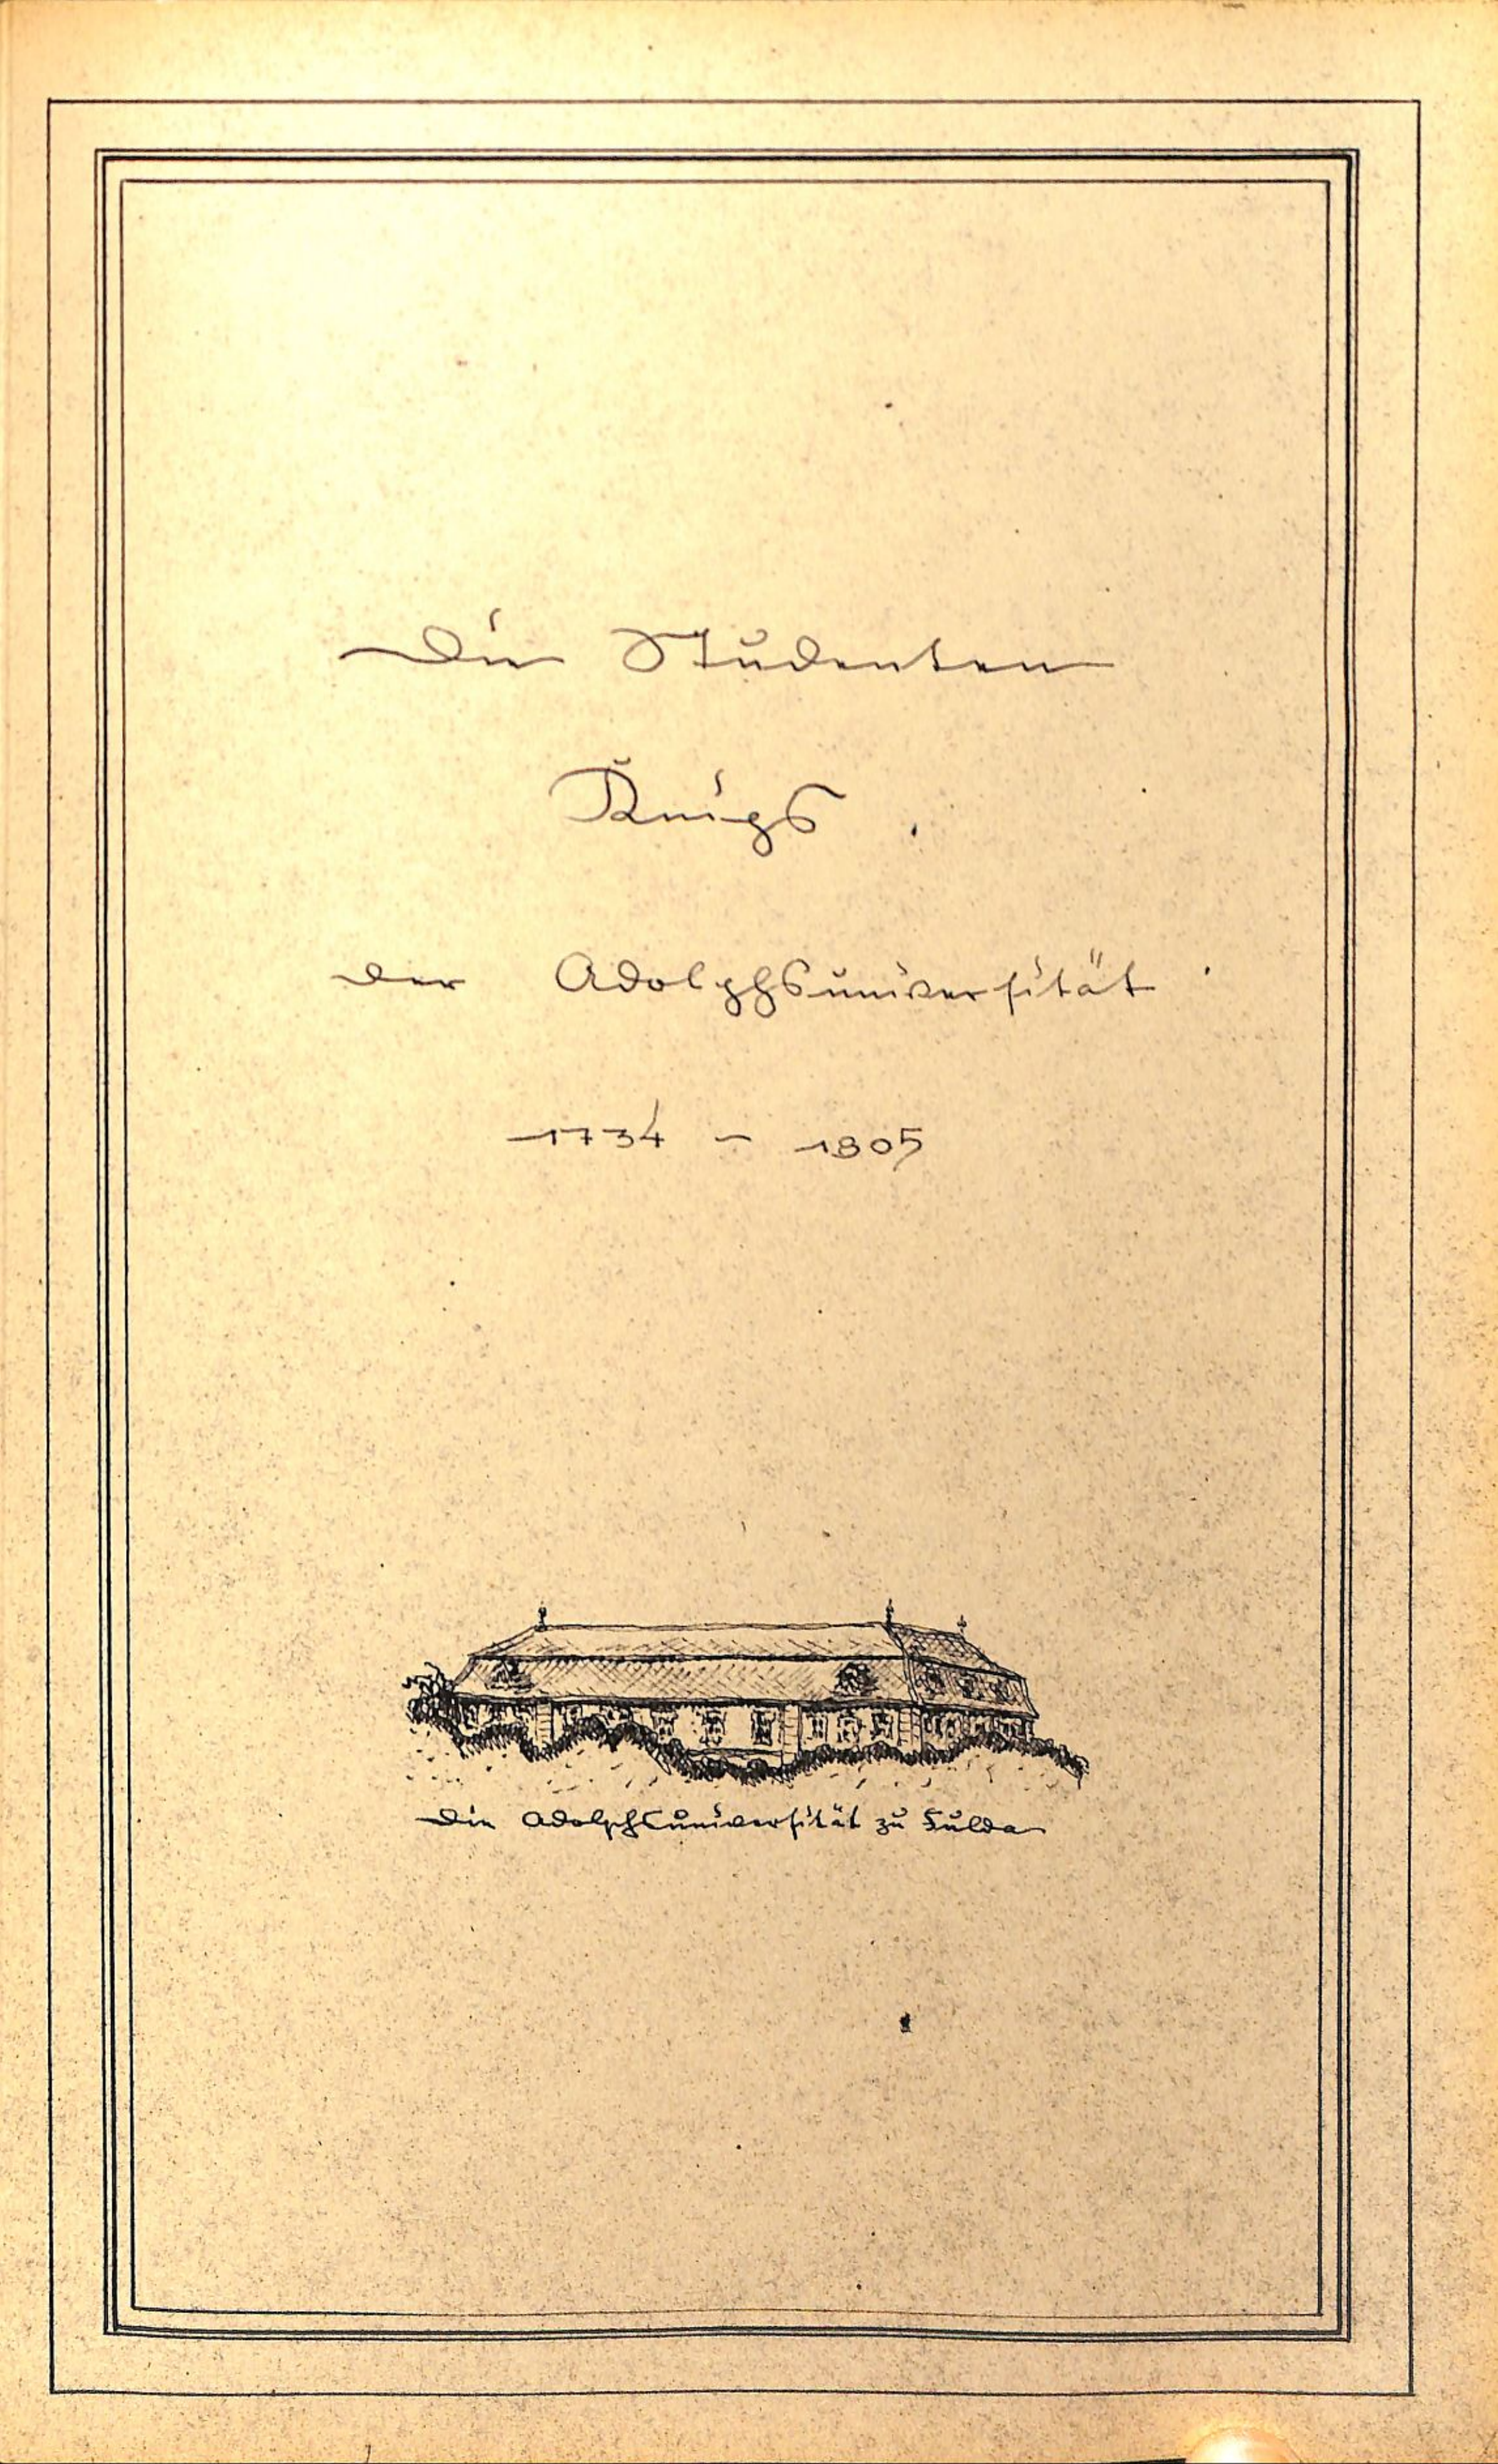 Die Studenten
der Adolphsuniversität
1734 - 1805
Die Adolphsuniversität zu Fulda